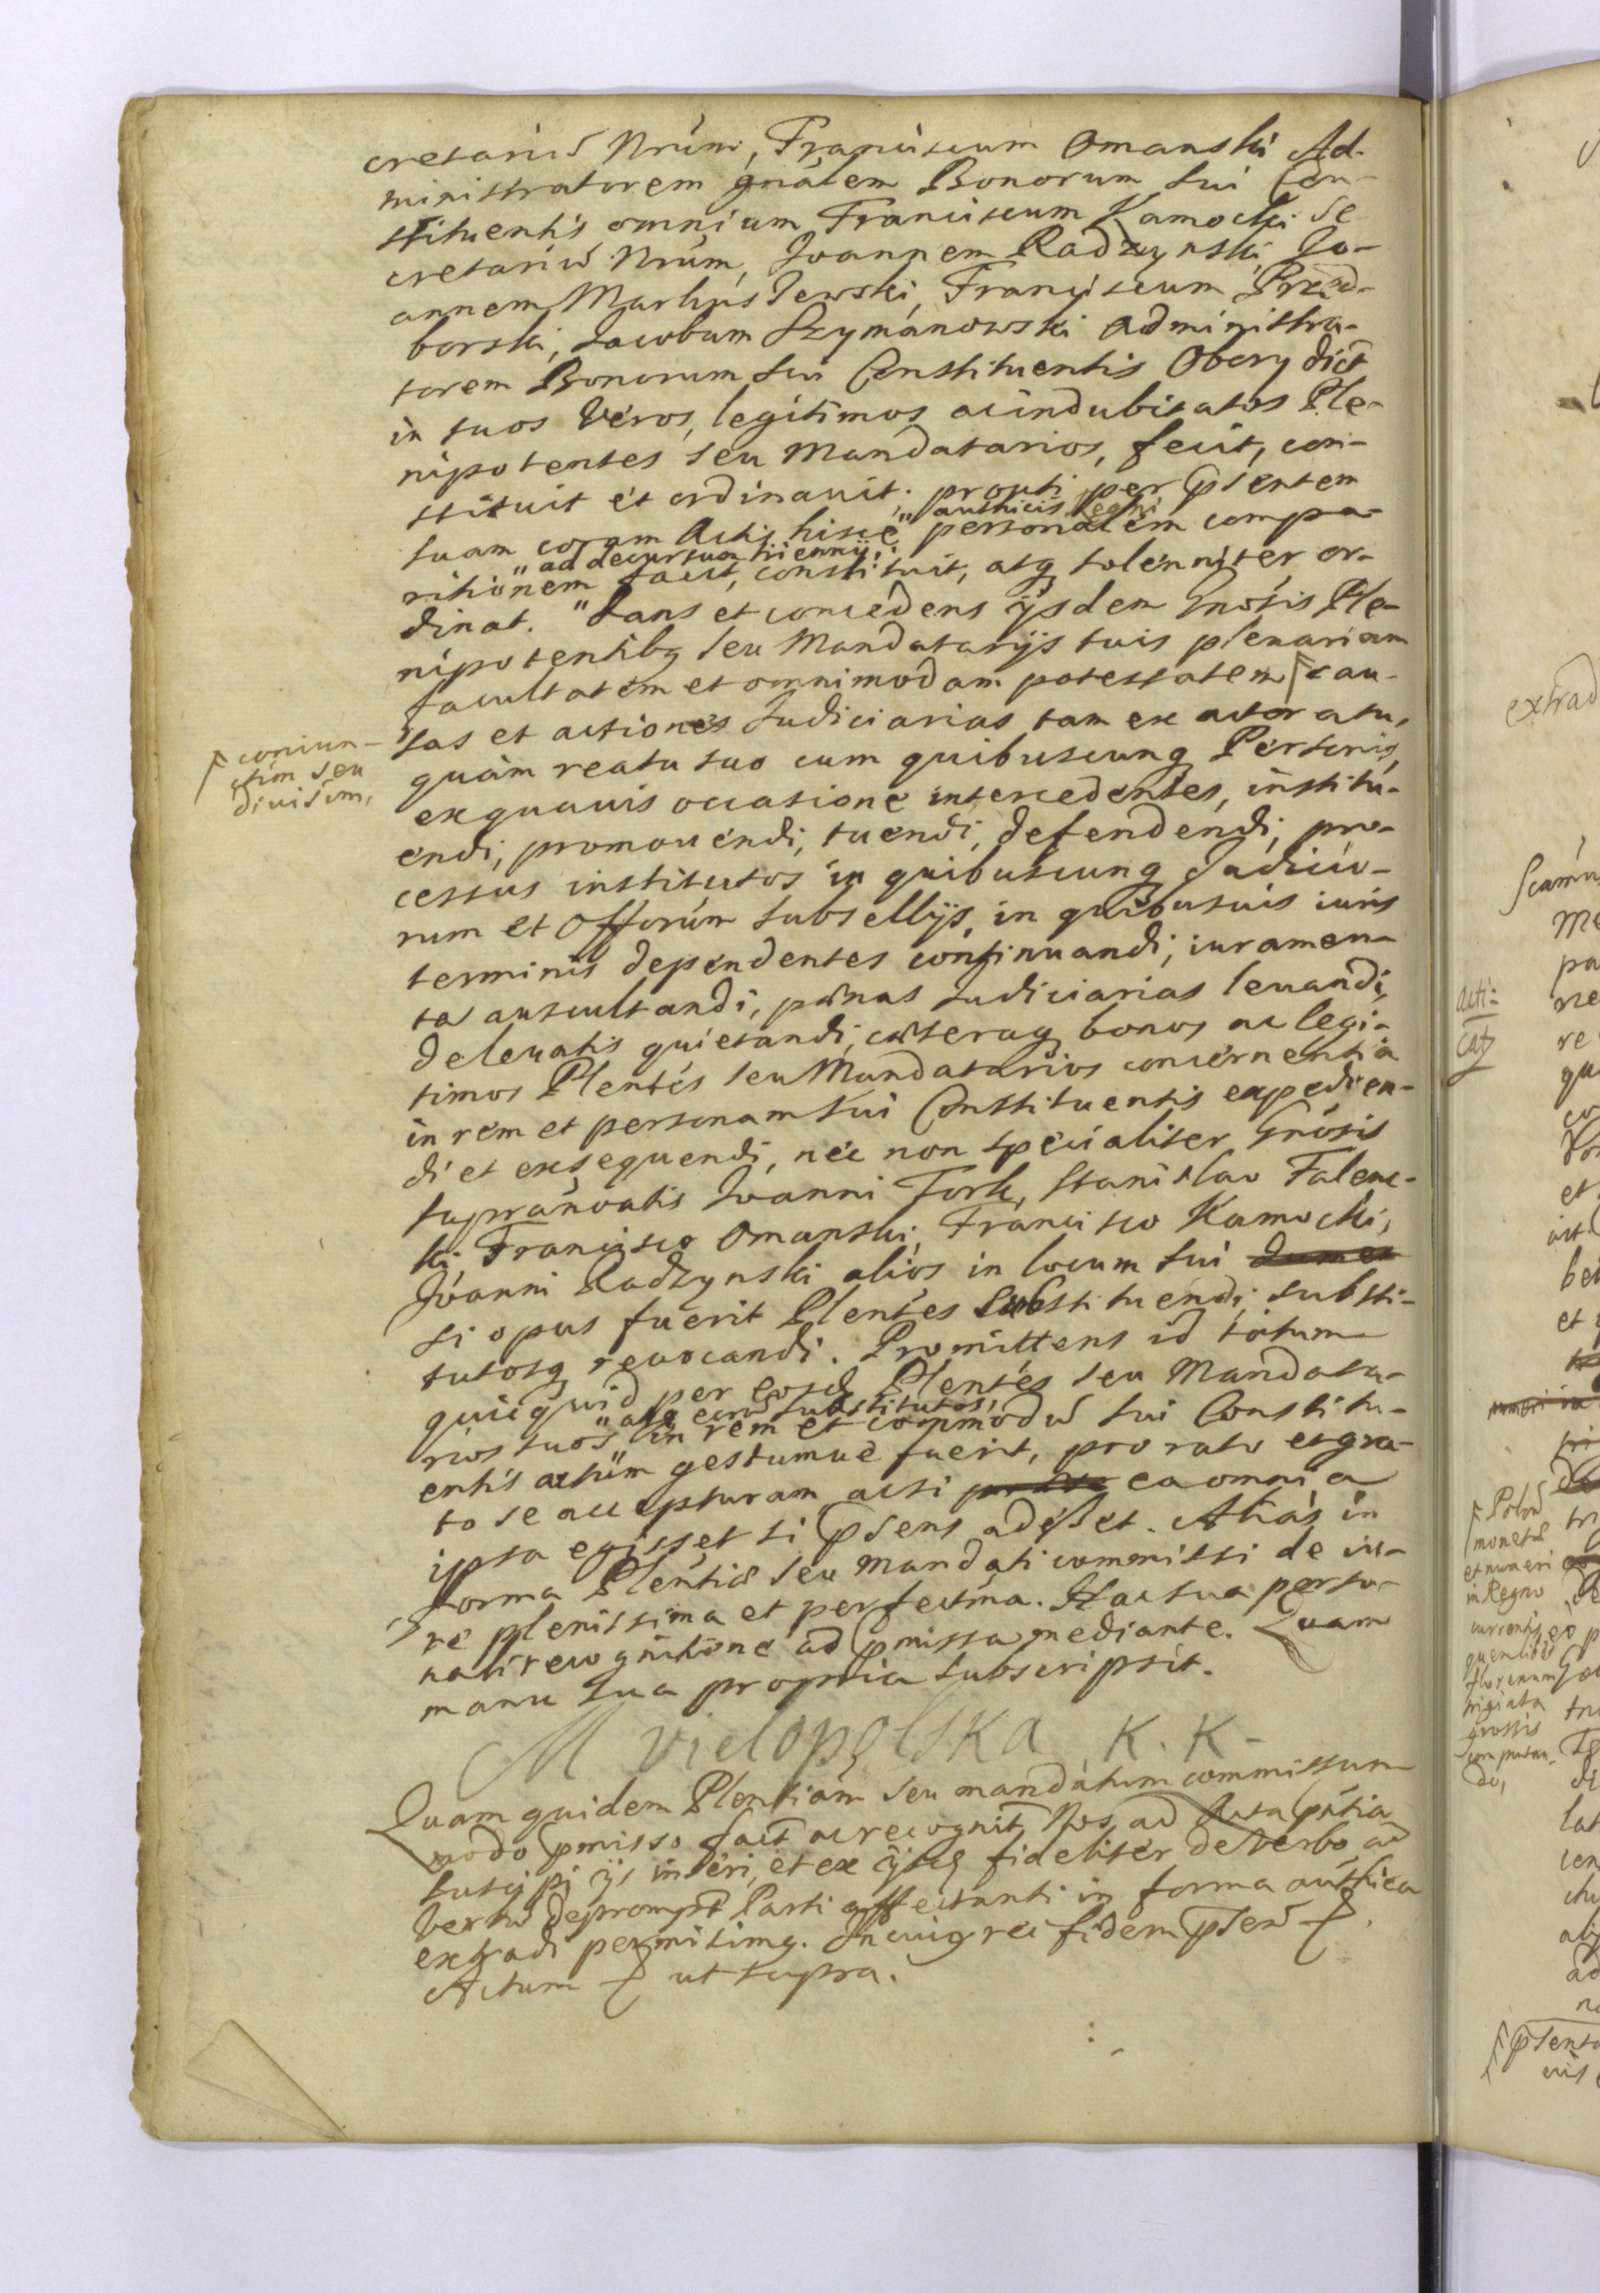 cretariu Nrum, Franciscum Omanski Ad-
ministratorem gnalem Bonorum sui Con-
stituentis omnium Franciscum Kamocki Se
cretariu Nrum, Joannem Radzynski Jo-
annem Franciscum
borski, Jacobum Szymanowski Administra-
torem Bonorum sui Constituentis Obory dict
in suos veros, legitimos ac indubitatos Ple-
nipotentes seu Mandatarios, fecit, con-
stituit et ordinavit. prouti per psentem
suam coram Actis hisce " authicis Regni personalem compa-
ritionem facit, constituit, atq solenniter or-
" ad decursum triennij
dinat. " Dans et concedens ijsdem Gnosis Ple-
nipotentibq seu Mandatarijs suis plenariam
facultatem et omnimodam potestatem cau-
sas et actiones Judiciarias tam ex actoratu,
coniun-
ctim seu
divisim,
quam reatu suo cum quibuscunq Personis,
ex quavis occasione intercedentes, institu-
endi, promovendi, tuendi, defendendi, pro-
cessus institutos in quibuscunq Judicio-
rum et Offorum subsellijs, in quibusvis iuris
terminis dependentes continuandi, iuramen-
ta auscultandi, pœnas Judiciarias levandi,
de levatis quietandi, cæteraq bonos ac legi-
timos Plentes seu Mandatarios concernentia
in rem et personam sui Constituentis expedien-
di et exsequendi, nec non specialiter Gnosis
supranoatis Joanni Fork, Stanislao Falenc-
ki Francisco Omanski, Francisco Kamocki,
Joanni Radzynski alios in locum sui
si opus fuerit Plentes substituendi substi-
tutosq revocandi. Promittens id totum
quicquid per eosd Plentes seu Mandata-
rios suos " atq eoru substitutos, in rem et commodu sui Constitu-
entis actum gestumve fuerit, pro rato et gra-
to se accepturam, acsi ea omnia
ipsa egisset si psens adesset. Alias in
forma Plentiæ seu Mandati commissi de iu-
re plenissima et perfectima. Hac sua perso-
nali recognitione ad pmissa mediante. Quam
manu sua propria subscripsit.
M Vielopolska K. K-
Quam quidem Plentiam seu mandatum commissum
modo pmisso fact ac recognit Nos ad Acta pntia
suscipi ijs inseri, et ex ijsd fideliter de verbo ad
verbu deprompt Parti affectanti in forma authica
extradi permisimq. In cuiq rei fidem psen
Actum ut supra.
extrad
acti-
cat
Polon
monetæ
et numeri
in Regno
currentis
quemlibet
florenum
triginta
grossis
computan-
do,